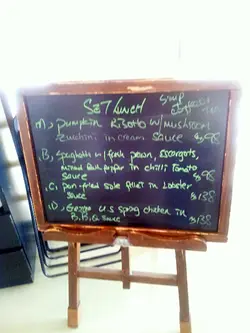 Set Lunch
Soup
A) Pumpkin Risotto w/ mushroom
Zucchini in cream sauce $98
B) Spaghetti w/ fresh prawn, escargots,
mixed bell pepper in chilli tomato
sauce $98
C) pan-fried sole fillet in Lobster
sauce $138
D) U.S spring chicken in
B.B.Q sauce $138